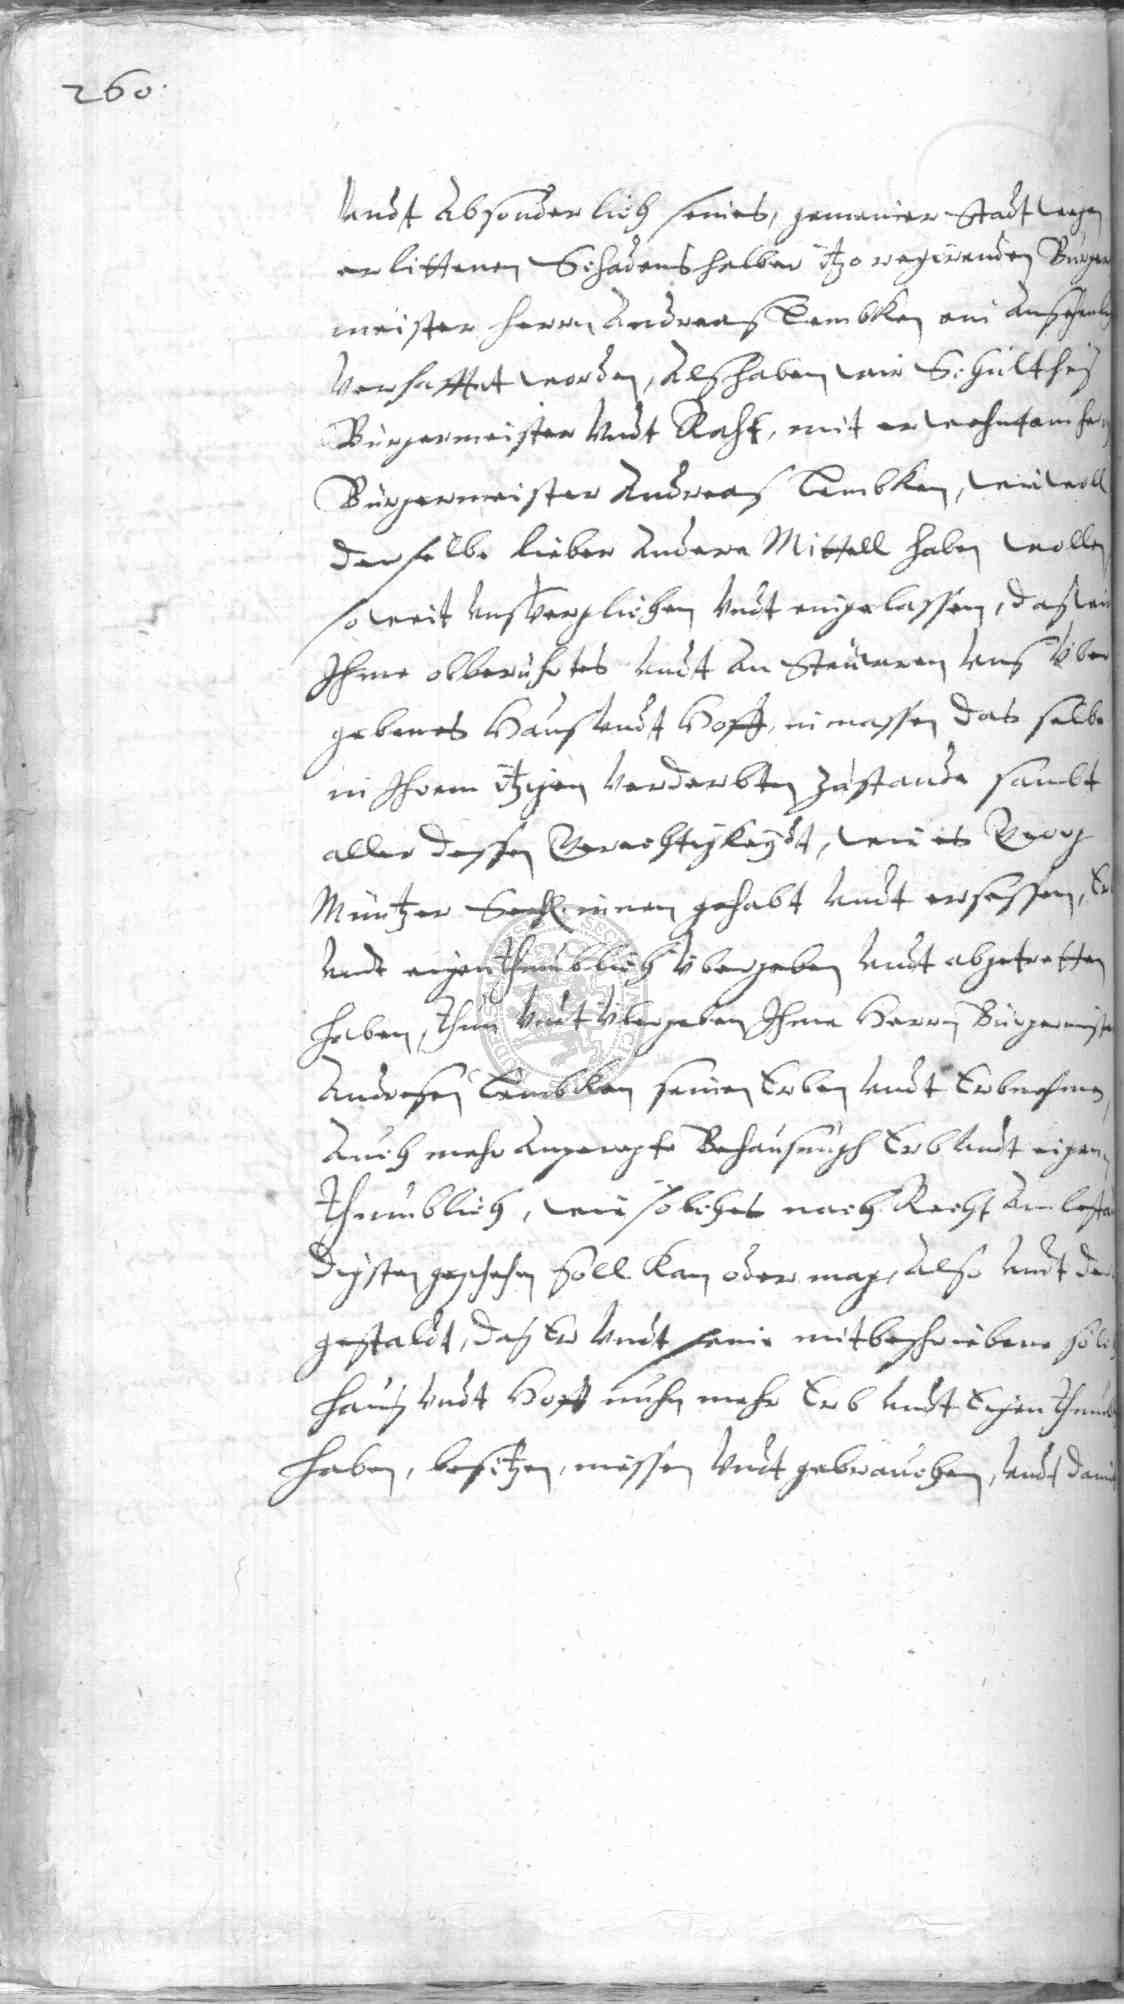 260.
Vndt Absonderlich seines, gemeiner Stadt wegen
erlittenen Schadens halber itzo regirenden Bürger
meister Herrn Andreas Lembken ein Ansehnlich
verhafftet worden, Alß haben wir Schultheiß
Bürgermeister Vndt Raht, mit erwehntem Herrn
Bürgermeister Andreas Lembken, wiewoll
derselbe lieber Andere Mittell haben wollen
so weit vnß verglichen Vndt eingelassen, daß wir
Ihme obberuhrtes Vndt An Steüren Vnß Vber
gebenes Hauß Vndt Hoff, inmassen das selbe
in Ihrem itzigen Verderbten Zustande sambt
aller dessen Gerechtigkeydt, wie es Georg
Müntzer Seel. innen gehabt Vndt ersessen, Erb
Vndt eigenthumblich Vbergeben Vndt abgetretten
haben, Thun Vndt Vbergeben Ihme Herrn Bürgermeister
Andresen Lembken seinen Erben Vndt Erbnehmen,
Auch mehr Angeregte Behausungh Erb Vndt eigen
thumblich, wie solches nach Recht Am bestän
digsten geschehen soll Kan oder mag, Also Vndt der
gestaldt, daß Er Vndt seine mitbeschriebene solch
Hauß Vndt Hoff nuhn mehr Erb Vndt Eigenthumb
haben, besitzen, niessen Vndt gebrauchen, Vndt damit